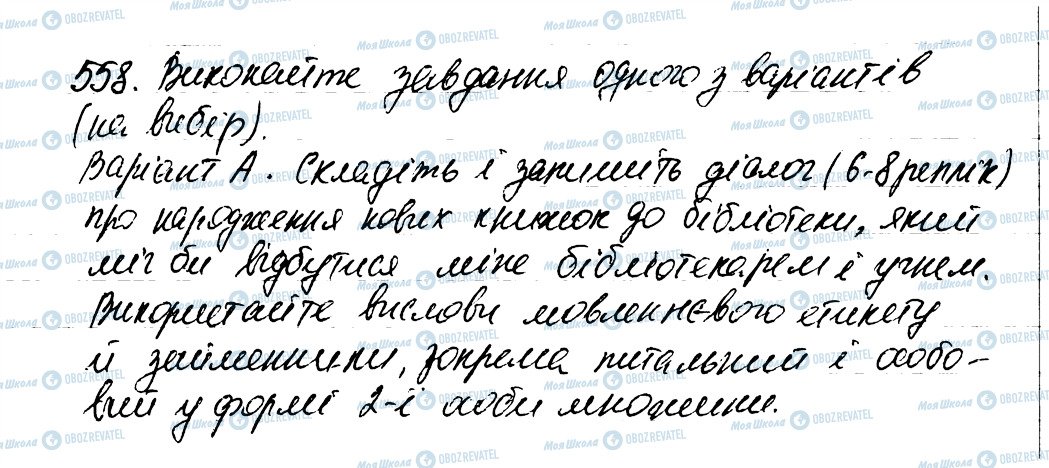 558. Виконайте завдання одного з варіантів
(на вибір).
Варіант А. Складіть і запишіть діалог (6-8 реплік)
про народження нових книжок до бібліотеки, який
міг би відбутися між бібліотекарем і учнем.
Використайте вислови мовленнєвого етикету
й займенники, зокрема питальний і особо-
вий у формі 2-ї особи множини.